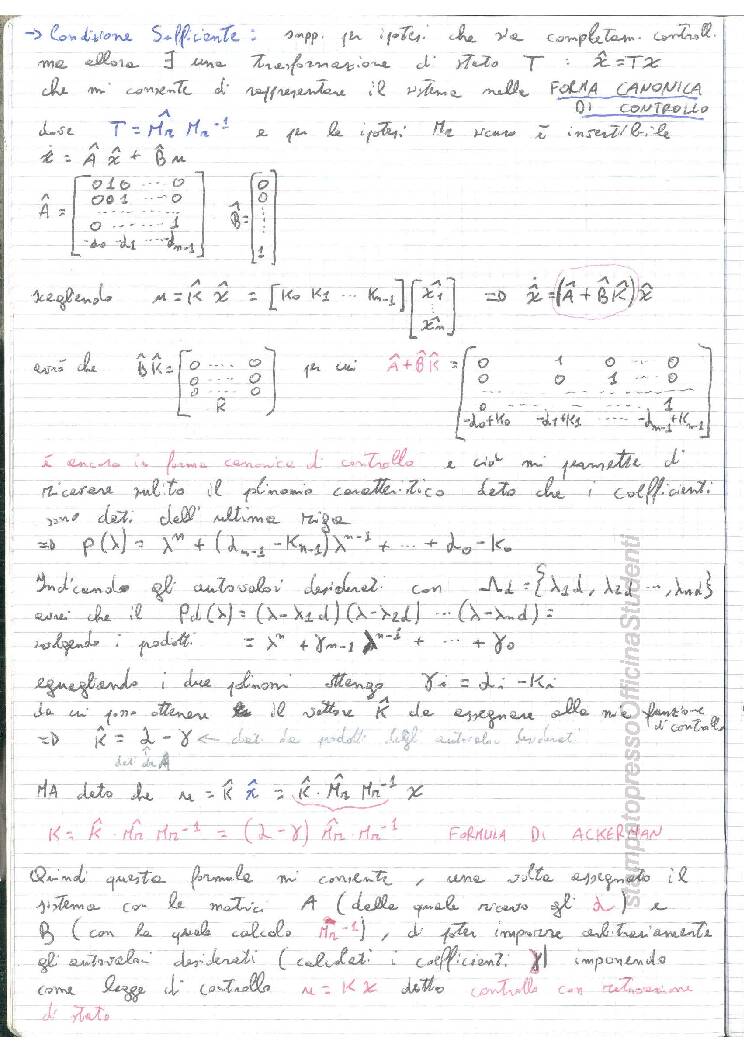 → Condizione Sufficiente: supp. per ipotesi che sia completam. controll.
ma allora ∃ una trasformazione di stato T : x̂=Tx
che mi consente di rappresentare il sistema nella FORMA CANONICA
DI CONTROLLO
dove T = M̂r Mr⁻¹ e per le ipotesi Mr sicuro è invertibile
ẋ = Â x̂ + B̂ u
Â = [0 1 0 ... 0; 0 0 1 ... 0; ...; 0 ... 1; -α0 -α1 ... αn-1] B̂ = [0; 0; ...; 1]
scegliendo u = K̂ x̂ = [K0 K1 ... Kn-1] [x̂1; ...; x̂n] => x̂˙ = (Â + B̂K̂) x̂
avrò che B̂K̂ = [0 ... 0; 0 ... 0; 0 ... 0; K̂] per cui Â+B̂K̂ = [0 1 0 ... 0; 0 0 1 ... 0; ...; 0 ... 1; -α0+K0 -α1+K1 ... -αn-1+Kn-1]
è ancora in forma canonica di controllo e ciò mi permette di
ricavare subito il plinomio caratteristico dato che i coefficienti
sono dati dell'ultima riga
=> p(λ) = λⁿ + (αn-1 - Kn-1) λⁿ⁻¹ + ... + α0 - K0
Indicando gli autovalori desiderati con Λd = {λ1d, λ2d ..., λnd}
avrei che il Pd(λ) = (λ-λ1d)(λ-λ2d) ... (λ-λnd) =
svolgendo i prodotti = λⁿ + γn-1 λⁿ⁻¹ + ... + γ0
eguagliando i due plinomi ottengo γi = αi - Ki
da cui posso ottenere il vettore K̂ da assegnare alla mia funzione
di controllo
=> K̂ = α - γ ← dati da prodotti degli autovalori desiderati
dati da A
MA dato che u = K̂ x̂ = K̂ · M̂r Mr⁻¹ x
K = K̂ · M̂r Mr⁻¹ = (α - γ) M̂r · Mr⁻¹ FORMULA DI ACKERMAN
Quindi questa formula mi consente, una volta assegnato il
sistema con le matrici A (dalla quale ricavo gli α) e
B (con la quale calcolo Mr⁻¹), di poter imporre arbitrariamente
gli autovalori desiderati (calcolati i coefficienti γ) imponendo
come legge di controllo u = Kx detto controllo con retroazione
di stato
stampatopressoOfficinaStudenti